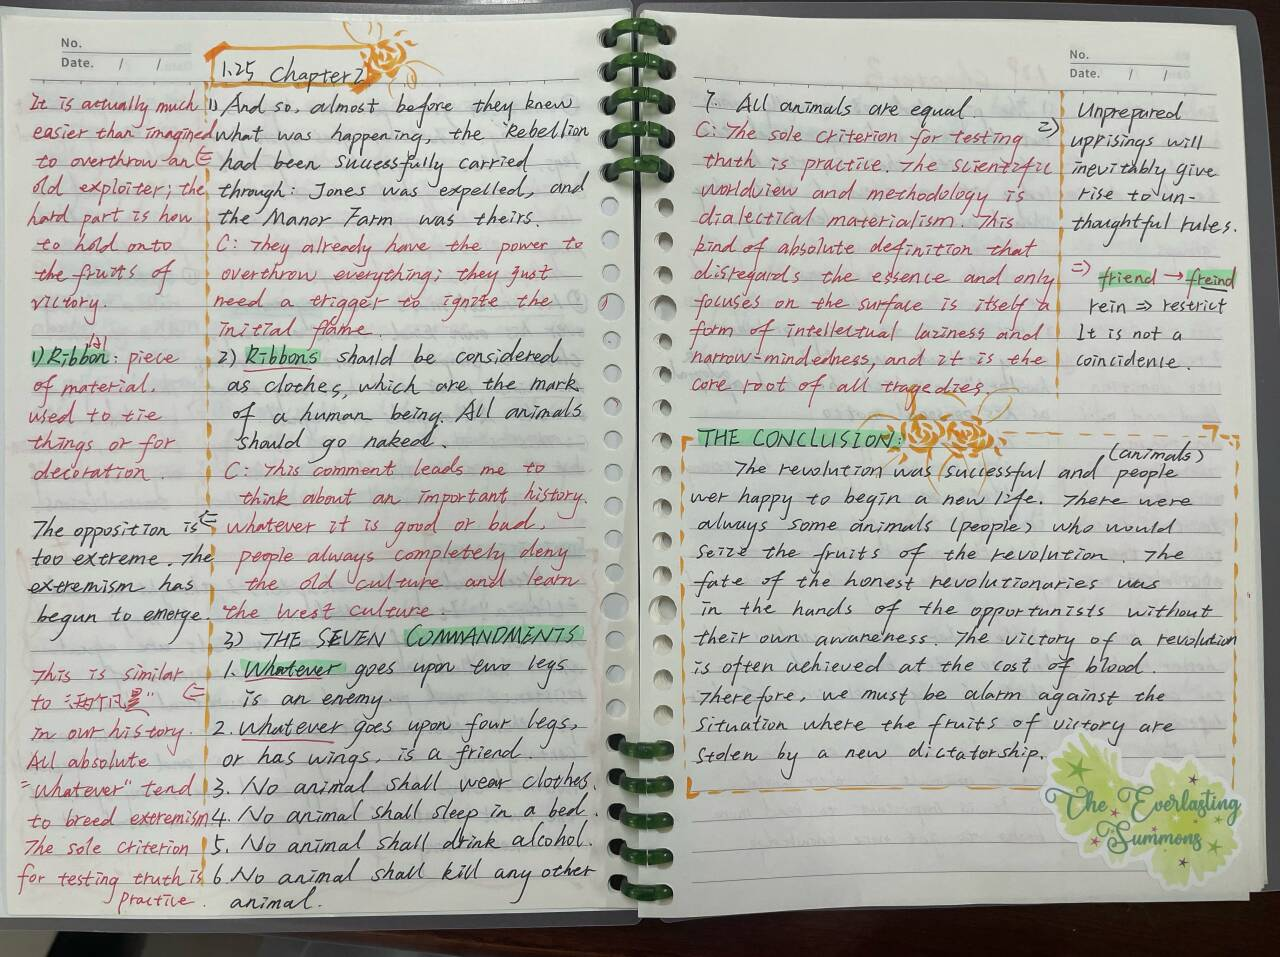 No.
Date. / /
1.25 Chapter 2
It is actually much
easier than imagined
to overthrow an
old exploiter; the
hard part is how
to hold onto
the fruits of
victory.
1) Ribbon: piece
of material.
used to tie
things or for
decoration.
The opposition is
too extreme. The
extremism has
begun to emerge.
This is similar
to
in our history.
All absolute
"whatever" tend
to breed extremism
The sole criterion
for testing truth is
practice.
1) And so, almost before they knew
what was happening, the Rebellion
had been successfully carried
through: Jones was expelled, and
the Manor Farm was theirs.
C: They already have the power to
overthrow everything; they just
need a trigger to ignite the
initial flame.
2) Ribbons should be considered
as clothes, which are the mark.
of a human being. All animals
should go naked.
C: This comment leads me to
think about an important history.
whatever it is good or bad,
people always completely deny
the old culture and learn
the west culture.
3) THE SEVEN COMMANDMENTS
1. Whatever goes upon two legs
is an enemy.
2. Whatever goes upon four legs,
or has wings, is a friend.
3. No animal shall wear clothes.
4. No animal shall sleep in a bed.
5. No animal shall drink alcohol.
6. No animal shall kill any other
animal.
No.
Date. / /
7. All animals are equal.
C: The sole criterion for testing
truth is practice. The scientific
worldview and methodology is
dialectical materialism. This
kind of absolute definition that
disregards the essence and only
focuses on the surface is itself a
form of intellectual laziness and
narrow-mindedness, and it is the
core root of all tragedies.
=) Unprepared
uprisings will
inevitably give
rise to un-
thoughtful rules.
=) friend → freind
rein => restrict
It is not a
coincidence.
THE CONCLUSION:
(animals)
The revolution was successful and people
wer happy to begin a new life. There were
always some animals (people) who would
seize the fruits of the revolution. The
fate of the honest revolutionaries was
in the hands of the opportunists without
their own awareness. The victory of a revolution
is often achieved at the cost of blood.
Therefore, we must be alarm against the
situation where the fruits of victory are
stolen by a new dictatorship.
The Everlasting
Summons